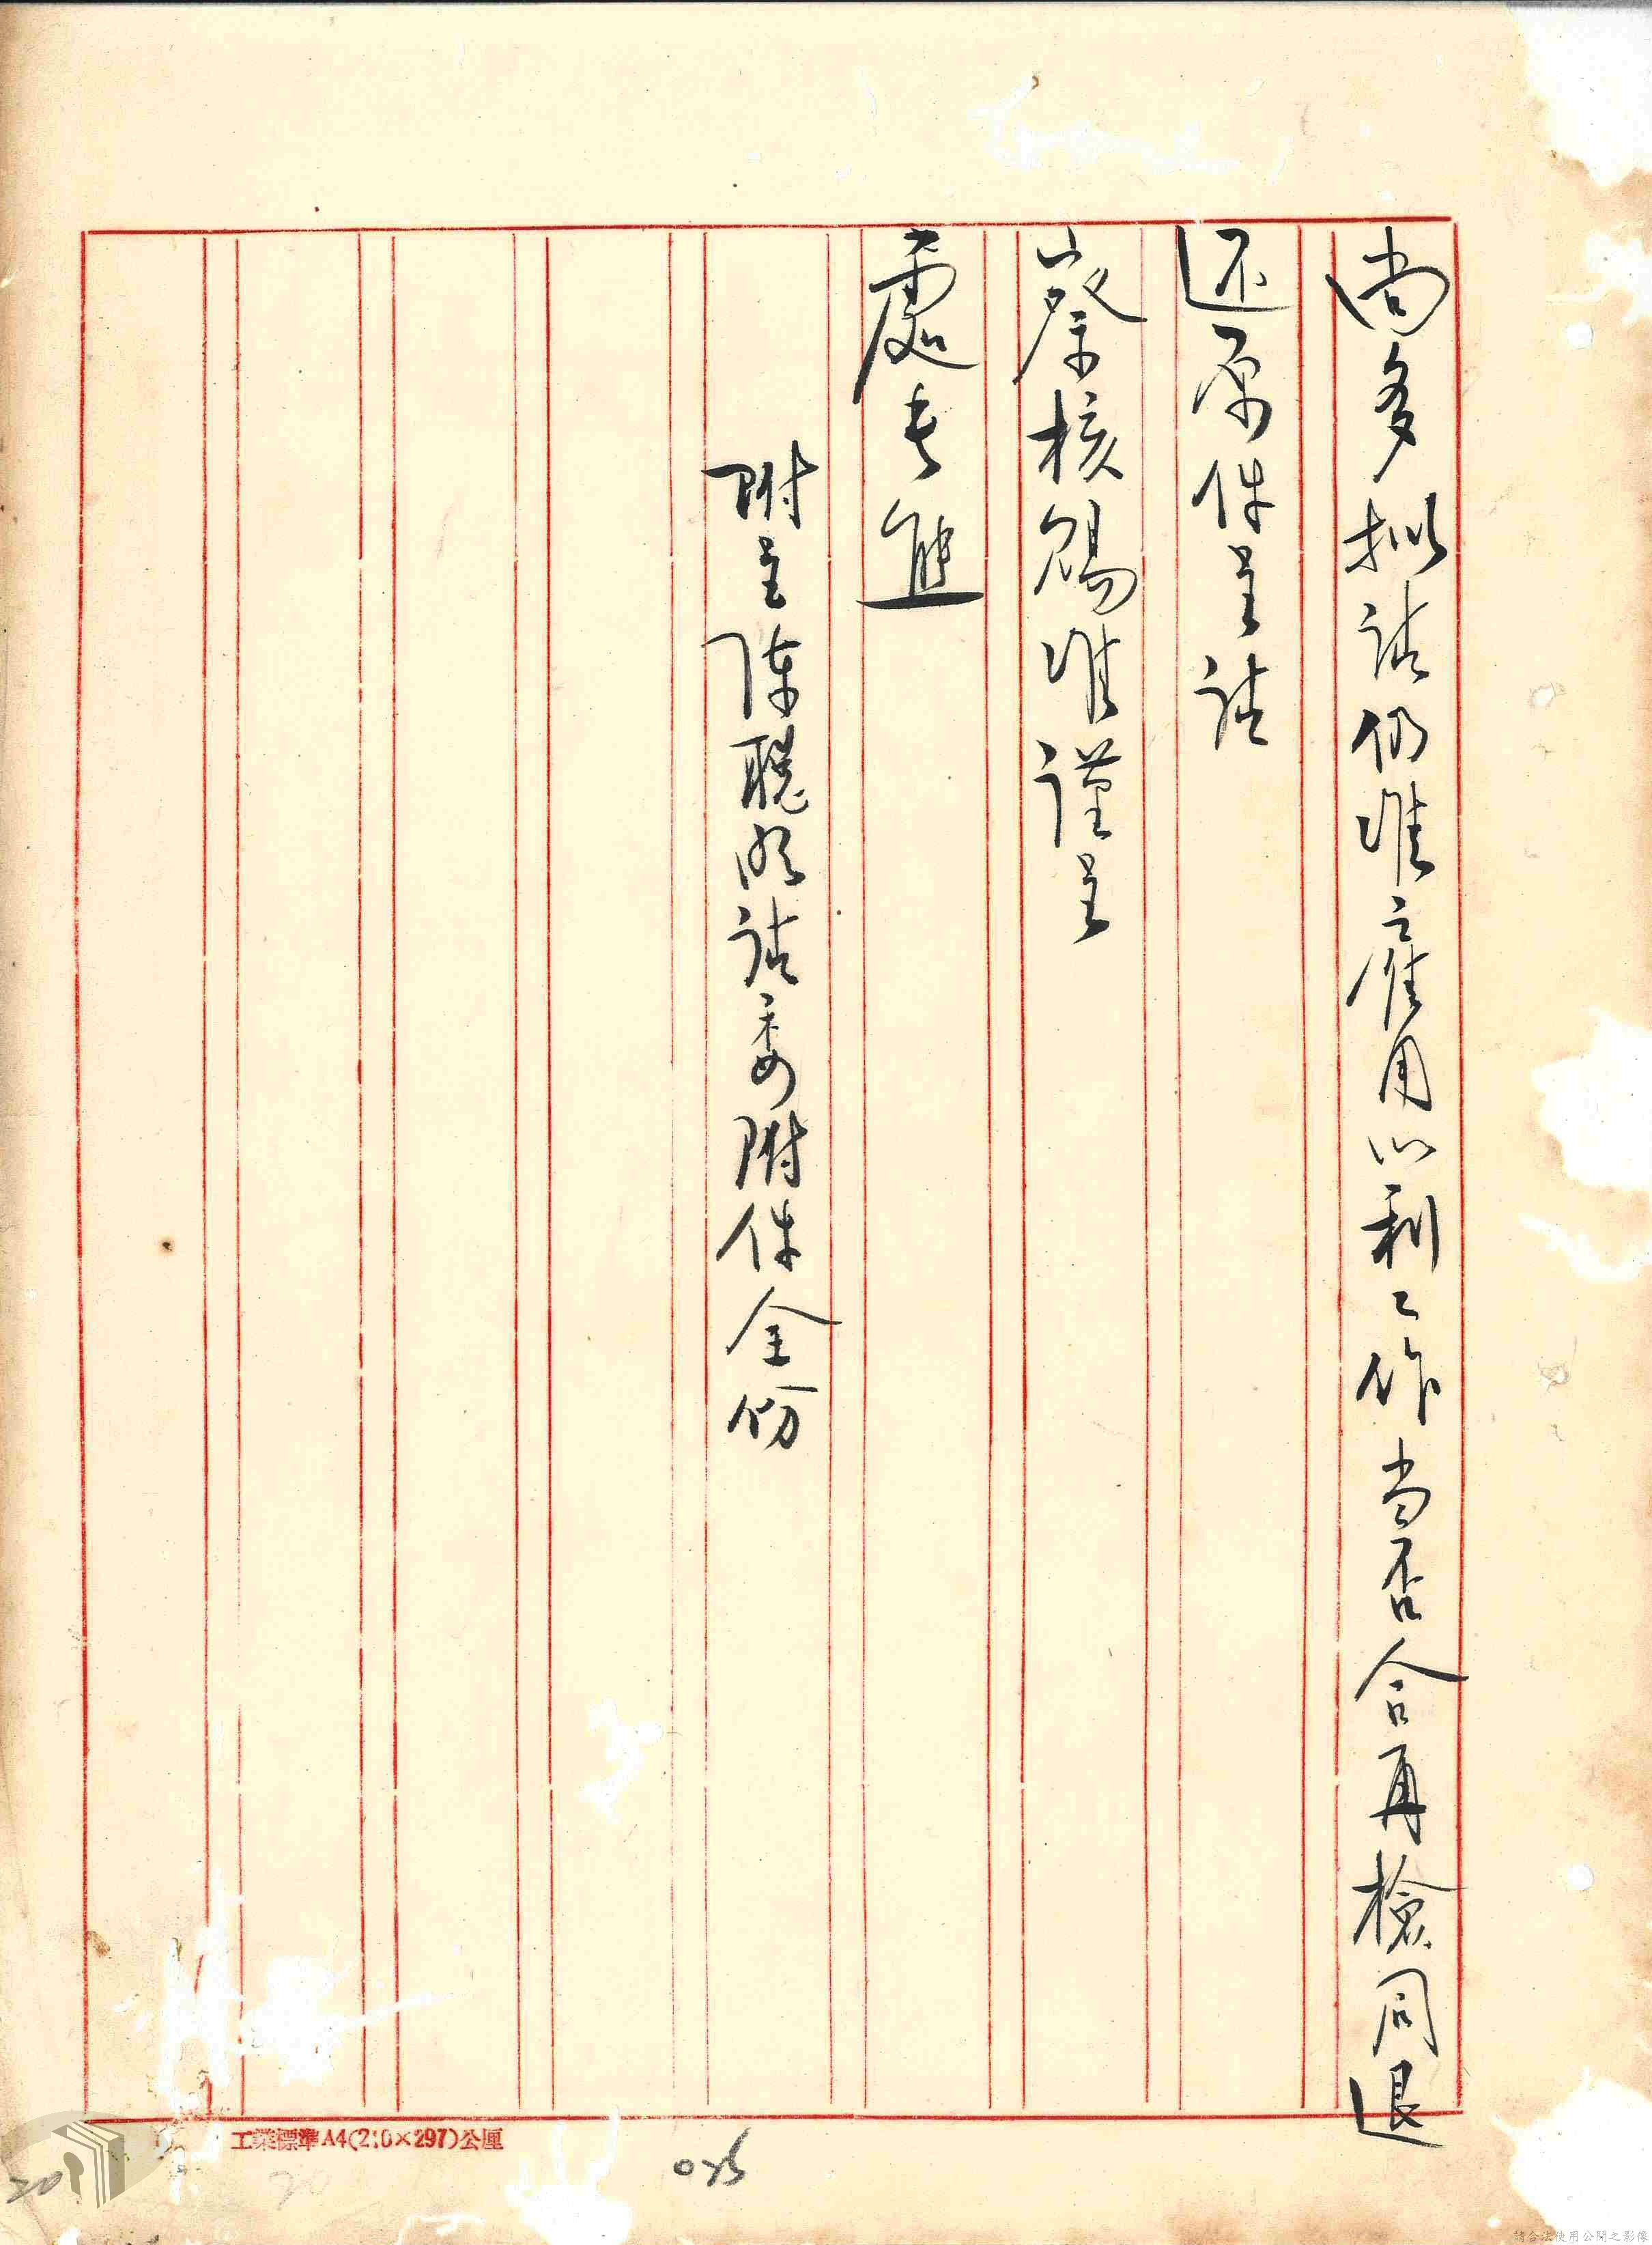 尚多擬請仍准雇用以利工作當否合再檢同退
还原件呈請
詧核賜准謹呈
處長熊
附呈陳聰明請委附件全份
工業標準A4(210×297)公厘
020
20
請合法使用公開之影像